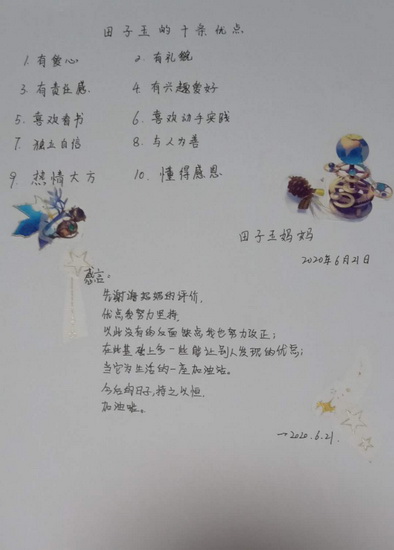 田子玉的十条优点
1. 有爱心 2. 有礼貌
3. 有责任感 4. 有兴趣爱好
5. 喜欢看书 6. 喜欢动手实践
7. 独立自信 8. 与人为善
9. 热情大方 10. 懂得感恩
田子玉妈妈
2020年6月21日
感言：
先谢谢妈妈的评价.
优点我努力坚持,
以此没有的反面缺点我也努力改正；
在此基础上多一些能让别人发现的优点；
当它为生活的一座加油站。
今后的日子，持之以恒
加油啦。
一2020.6.21.